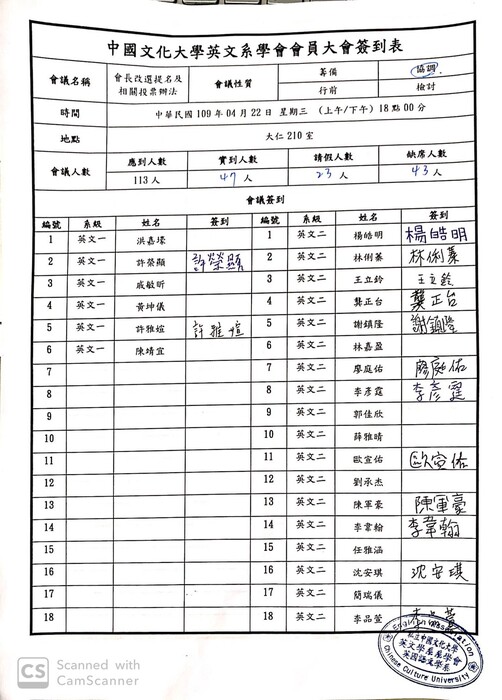 中國文化大學英文系學會會員大會簽到表
會議名稱 會長改選提名及相關投票辦法 會議性質 籌備 協調
行前 檢討
時間 中華民國 109 年 04 月 22 日 星期三 (上午/下午) 18 點 00 分
地點 大仁 210 室
會議人數 應到人數 實到人數 請假人數 缺席人數
113 人 47 人 23 人 43 人
會議簽到
編號 系級 姓名 簽到 編號 系級 姓名 簽到
1 英文一 洪嘉壕 1 英文二 楊皓明 楊皓明
2 英文一 許榮顯 許榮顯 2 英文二 林俐蓁 林俐蓁
3 英文一 戚敏昕 3 英文二 王立鈴 王立鈴
4 英文一 黃坤儀 4 英文二 龔正台 龔正台
5 英文一 許雅媗 許雅媗 5 英文二 謝鎮隆 謝鎮隆
6 英文一 陳靖宜 6 英文二 林嘉盈
7 7 英文二 廖庭佑 廖庭佑
8 8 英文二 李彥霆 李彥霆
9 9 英文二 郭佳欣
10 10 英文二 薛雅晴
11 11 英文二 歐宣佑 歐宣佑
12 12 英文二 劉承杰
13 13 英文二 陳軍豪 陳軍豪
14 14 英文二 李韋翰 李韋翰
15 15 英文二 任雅涵
16 16 英文二 沈安琪 沈安琪
17 17 英文二 簡瑞儀
18 18 英文二 李品萱 李品萱
私立中國文化大學
英文學系系學會
英國語文學系
Chinese Culture University
CS Scanned with
CamScanner